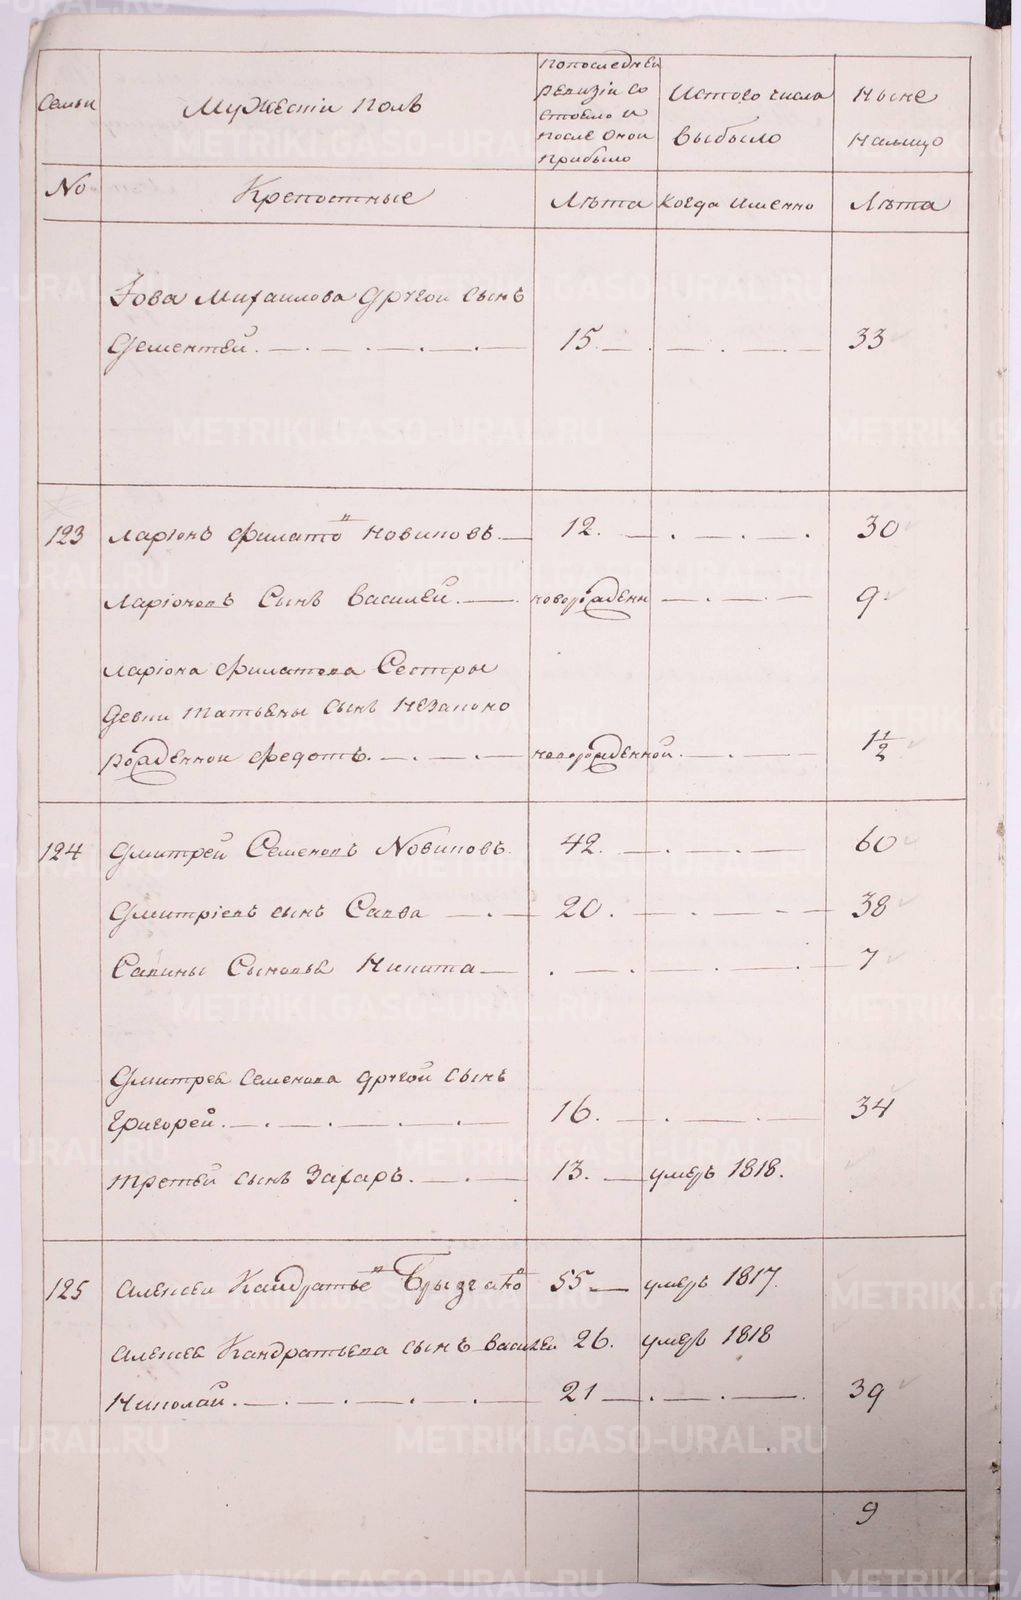 Семьи
Мужескiи полъ
по последней
ревизiи со
стояло и
после оной
прибыло
Истого числа
выбыло
Ныне
налицо
No
Крепостные
Лѣта
Когда именно
Лѣта
Iова Михаилова другой сынъ
Дементей. 15. 33
123 Ларiонъ Филатовъ Новиковъ. 12. 30
Ларiоновъ Сынъ Василей. новорожденн 9
Ларiона Филатова Сестры
Девки Татьяны сынъ незаконо
рожденной Федотъ. новорожденной 1 1/2
124 Дмитрей Семеновъ Новиковъ. 42. 60
Дмитрiевъ сынъ Савва 20. 38
Савины Сыновья Никита 7
Дмитрея Семенова другой сынъ
Григорей. 16. 34
третей сынъ Захаръ. 13. умеръ 1818.
125 Алексей Кандратьевъ Брызгаловъ 55 умеръ 1817.
Алексея Кандратьева сынъ Василей 26. умеръ 1818
Николай. 21 39
9
METRIKI.GASO-URAL.RU